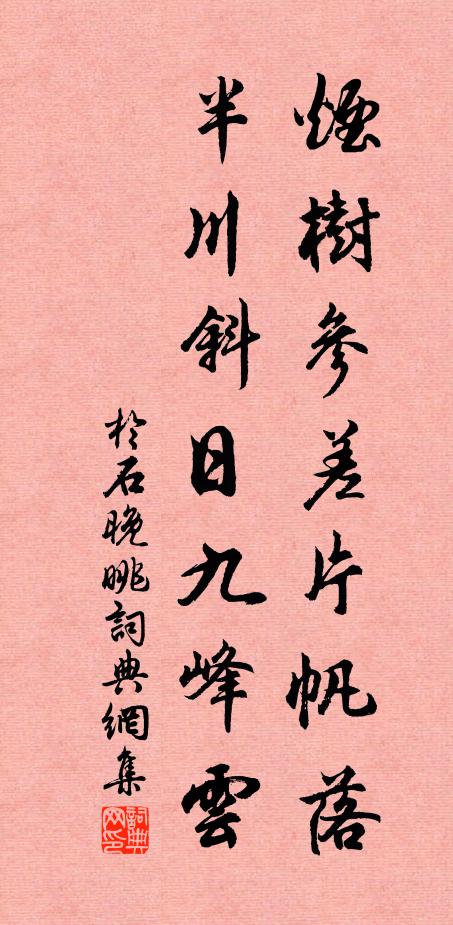 煙樹參差片帆落
半川斜日九峰雲
於石晚眺詞典網集
詞典网印